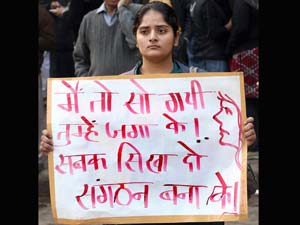 में तो सो गयी
तुम्हें जगा के!
सबक सिखा दो
संगठन बना के।